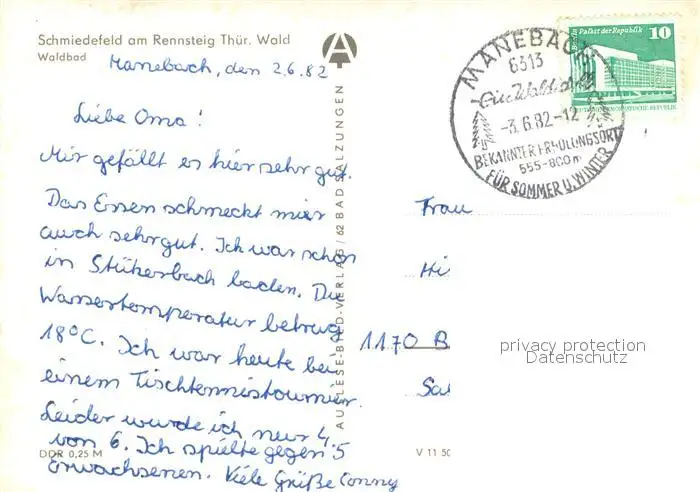 Schmiedefeld am Rennsteig Thür. Wald
Waldbad
Manebach, den 2.6.82
Liebe Oma!
Mir gefällt es hier sehr gut.
Das Essen schmeckt mir
auch sehr gut. Ich war schon
in Stützerbach baden. Die
Wassertemperatur betrug
18°C. Ich war heute bei
einem Tischtennistournier.
Leider wurde ich nur 4.
von 6. Ich spielte gegen 5
Erwachsenen. Viele Grüße Conny
DDR 0,25 M
AUSLESE-BILD-VERLAG / 62 BAD SALZUNGEN
V 11 50
MANEBACH
6313
-3.6.82-12
BEKANNTER ERHOLUNGSORT
555-800m
FÜR SOMMER U. WINTER
Palast der Republik 10
DEUTSCHE DEMOKRATISCHE REPUBLIK
Frau
Hi
1170 B
Sa
privacy protection
Datenschutz